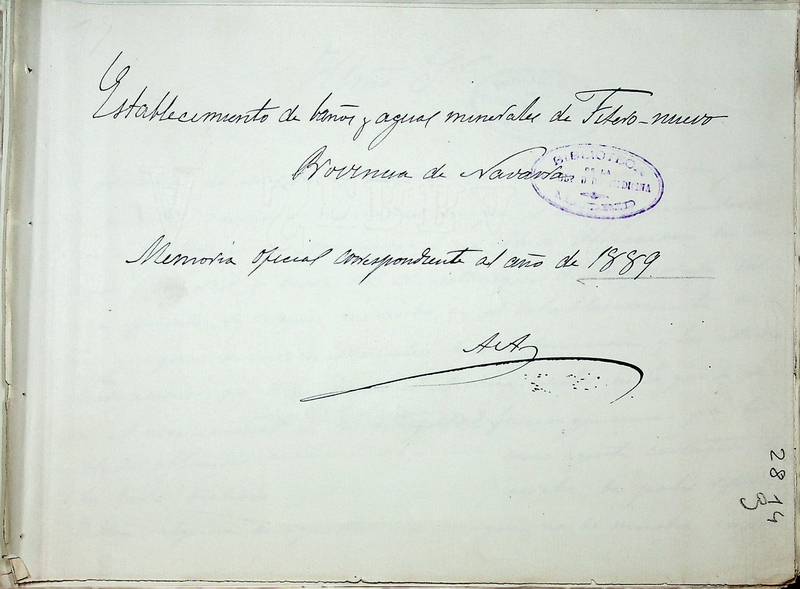 Establecimiento de baños y aguas minerales de Fitero-nuevo
Provincia de Navarra
BIBLIOTECA
DE LA
MADRID
Memoria oficial correspondiente al año de 1889
2814